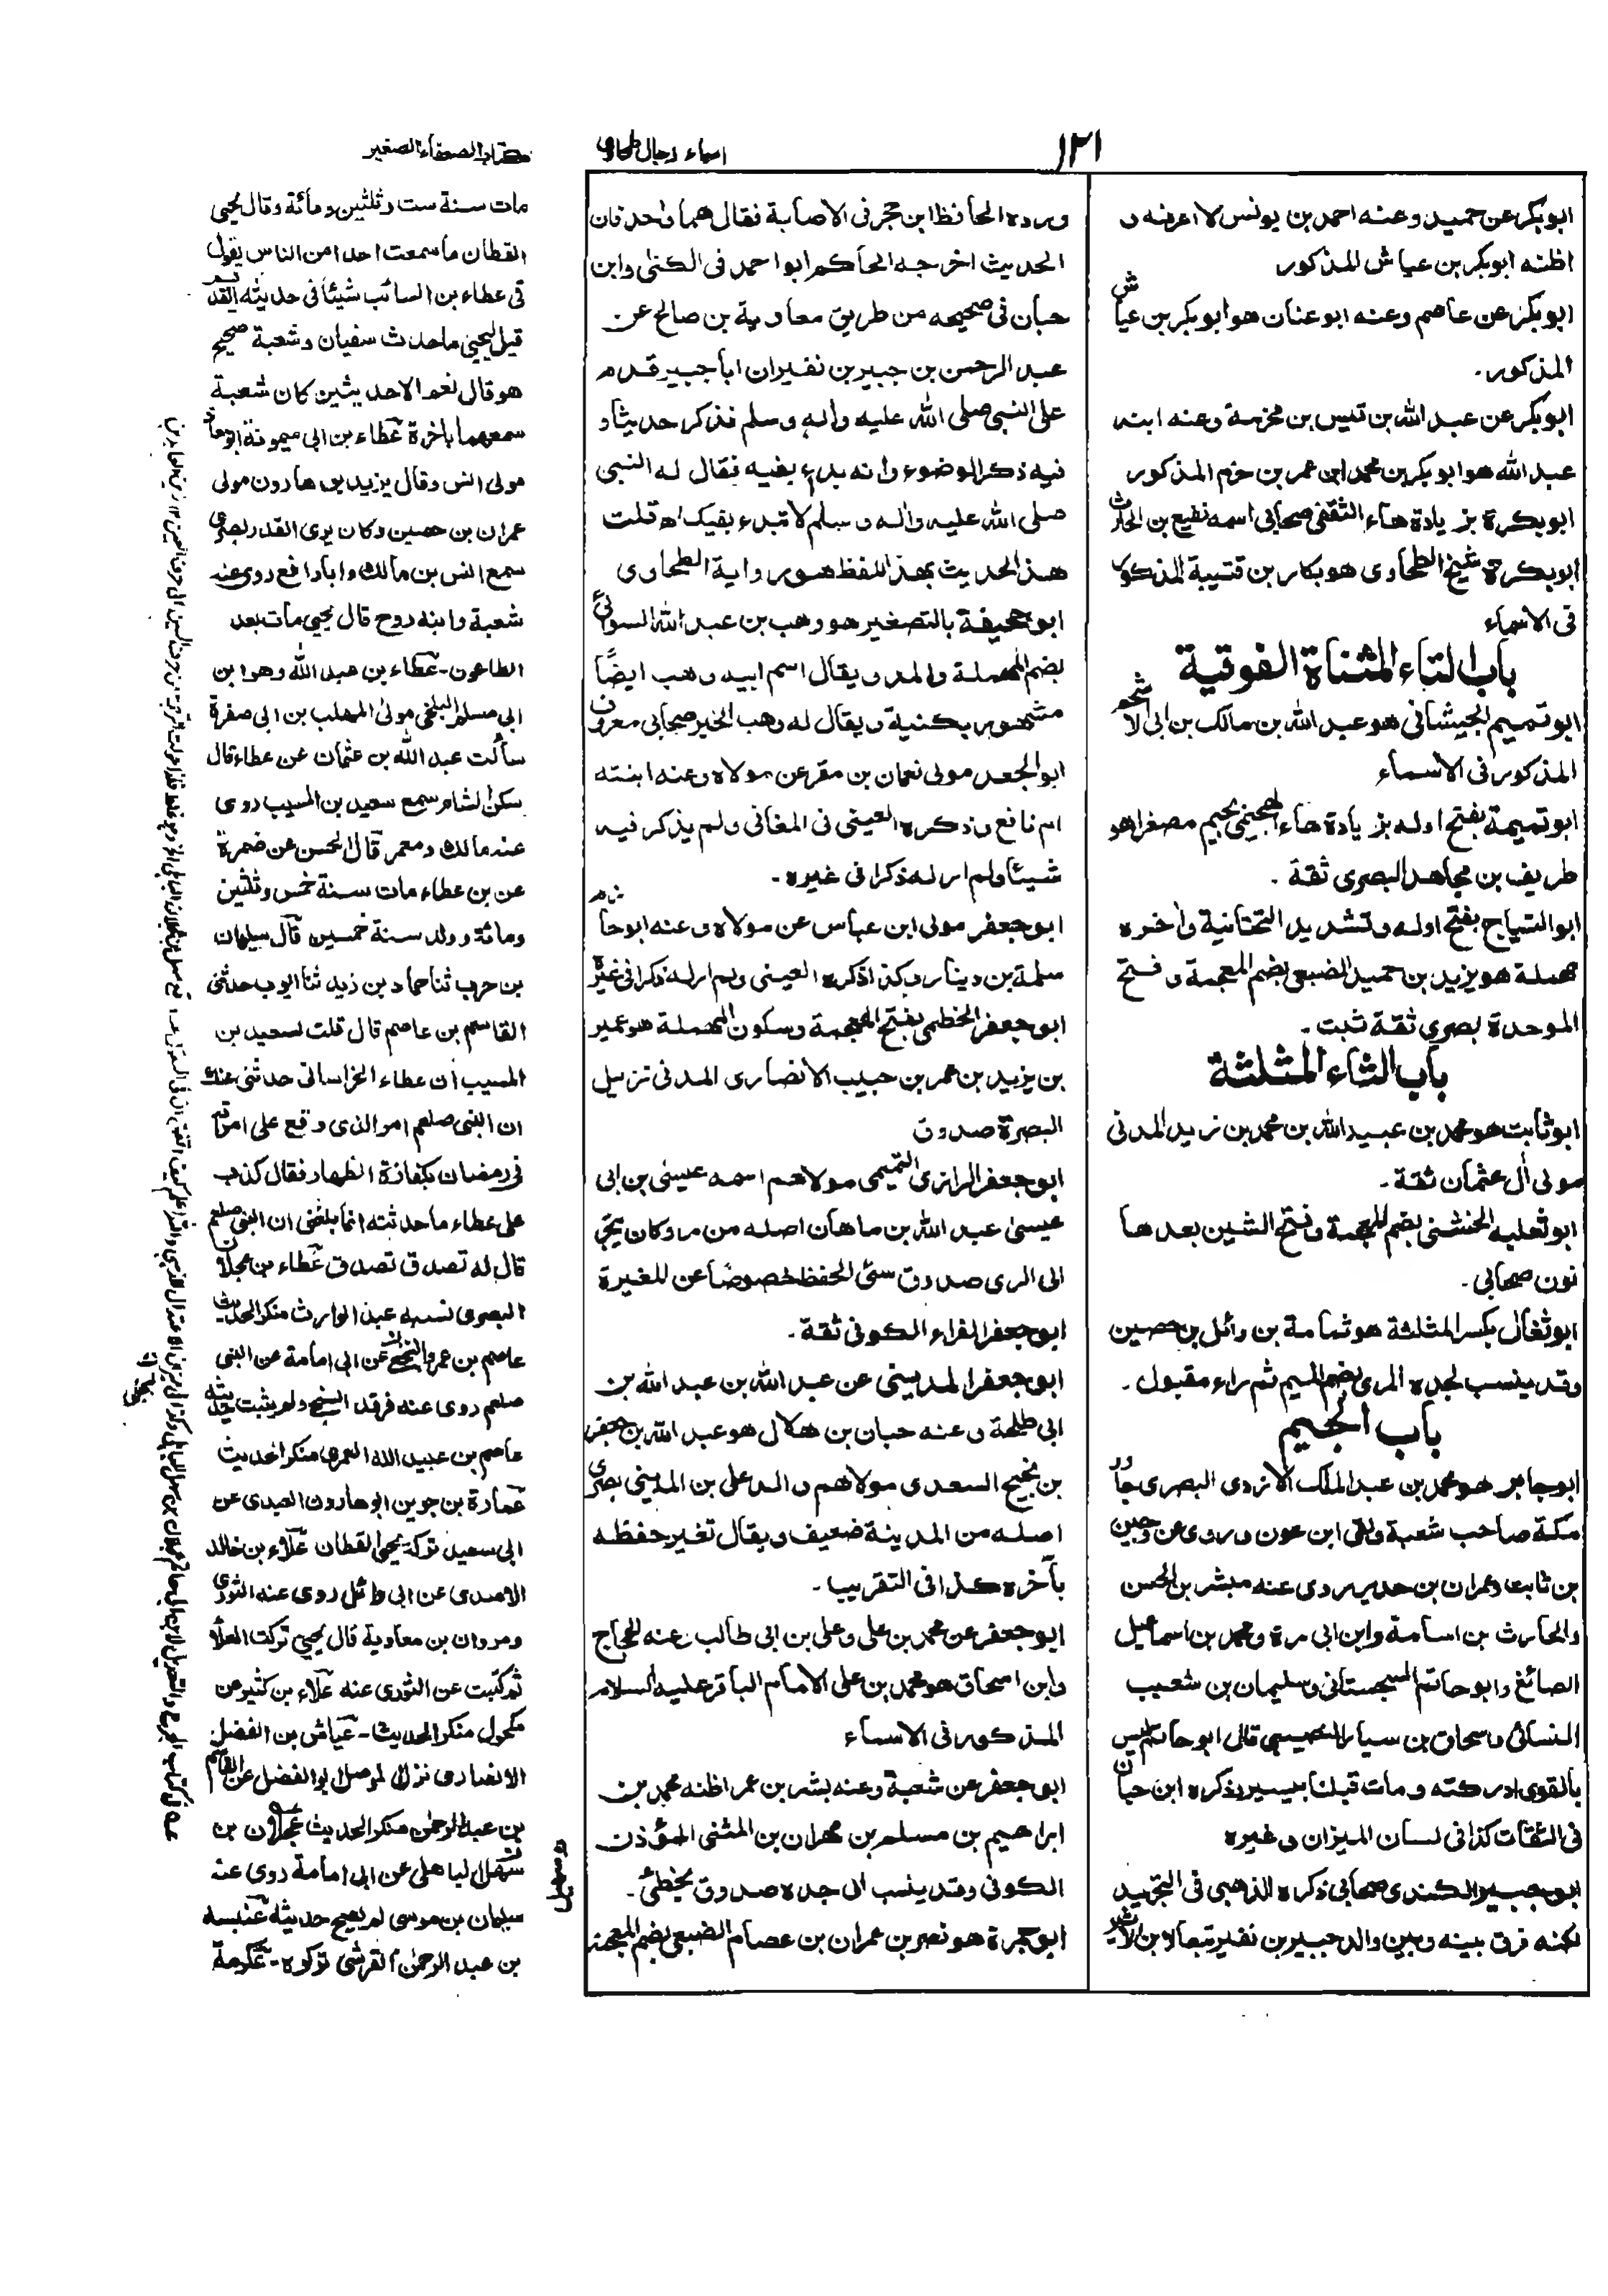 ١٢١
اسماء رجال طحاوى
كتاب الضعفاء الصغير
ابوبكر عن حميد وعنه احمد بن يونس لا اعرفه و
اظنه ابوبكر بن عياش المذكور
ابوبكر عن عاصم وعنه ابو عنان هو ابوبكر بن عياش
المذكور۔
ابوبكر عن عبد الله بن قيس بن مخرمة وعنه ابنه
عبد الله هو ابوبكر بن محمد ابن عمر بن حزم المذكور
ابوبكرة بزيادة هاء الثقفى صحابى اسمه نفيع بن الحارث
ابوبكرة شيخ الطحاوى هو بكار بن قتيبة المذكور
فى الاسماء
باب التاء المثناة الفوقية
ابو تميم الجيشانى هو عبد الله بن مالك بن ابى الاسحم
المذكور فى الاسماء
ابو تميمة بفتح اوله بزيادة هاء الهجيمى بجيم مصغرا هو
طريف بن مجاهد البصرى ثقة ۔
ابو التياح بفتح اوله وتشديد التحتانية واخره
مهملة هو يزيد بن حميد الضبعى بضم المعجمة وفتح
الموحدة بصرى ثقة ثبت ۔
باب الثاء المثلثة
ابو ثابت هو محمد بن عبيد الله بن محمد بن زيد المدنى
مولى آل عثمان ثقة ۔
ابو ثعلبه الخشنى بضم المعجمة وفتح الشين بعدها
نون صحابى ۔
ابو ثفال بكسر المثلثة هو ثمامة بن وائل بن حصين
وقد ينسب لجده المرى بضم الميم ثم راء مقبول ۔
باب الجيم
ابو جابر هو محمد بن عبد الملك الازدى البصرى جاور
مكة صاحب شعبة ولقى ابن عون وروى عن وحين
بن ثابت وعمران بن حدير روى عنه مبشر بن الحسن
والحارث بن اسامة وابن ابى مرة ومحمد بن اسماعيل
الصائغ وابو حاتم السجستانى وسليمان بن شعيب
النسائى واسحاق بن سيار النصيبى قال ابو حاتم ليس
بالقوى ادركته ومات قبلنا بيسير وذكره ابن حبان
فى الثقات كذا فى لسان الميزان وغيره
ابو جبير الكندى صحابى ذكره الذهبى فى التجريد
لكنه فرق بينه وبين والد جبير بن نفير تبعا لابن الاثير
ورده الحافظ ابن حجر فى الاصابة فقال هما واحد فان
الحديث اخرجه الحاكم ابو احمد فى الكنى وابن
حبان فى صحيحه من طريق معاوية بن صالح عن
عبد الرحمن بن جبير بن نفير ان ابا جبير قدم
على النبى صلى الله عليه واله وسلم فذكر حديثا و
فيه ذكر الوضوء وانه بدء بفيه فقال له النبى
صلى الله عليه واله وسلم لا تبدء بفيك اه قلت
هذا الحديث بهذ اللفظ هو رواية الطحاوى
ابو جحيفة بالتصغير هو وهب بن عبد الله السوائى
بضم المهملة والمد ويقال اسم ابيه وهب ايضًا
مشهور بكنية ويقال له وهب الخير صحابى معروف
ابو الجعد مولى نعمان بن مقرعن مولاه وعنه ابنته
ام نافع وذكره العينى فى المغانى ولم يذكر فيه
شيئا ولم ار له ذكرا فى غيره ۔
ابو جعفر مولى ابن عباس عن مولاه وعنه ابو حازم
سلمة بن دينار وكذا ذكره العينى ولم ار له ذكرا فى غيره
ابو جعفر الخطمى بفتح المعجمة وسكون المهملة هو عمير
بن يزيد بن عمر بن حبيب الانصارى المدنى نزيل
البصرة صدوق
ابو جعفر الرازى التميمى مولاهم اسمه عيسى بن ابى
عيسى عبد الله بن ماهان اصله من مرو كان يتجر
الى الرى صدوق سئ الحفظ خصوصًا عن المغيرة
ابو جعفر الفراء الكوفى ثقة ۔
ابو جعفر المدينى عن عبد الله بن عبد الله بن
ابى طلحة وعنه حبان بن هلال هو عبد الله بن جعفر
بن نجيح السعدى مولاهم والد على بن المدينى بصرى
اصله من المدينة ضعيف ويقال تغير حفظه
بآخره كذا فى التقريب ۔
ابو جعفر عن محمد بن على وعلى بن ابى طالب وعنه الحجاج
وابن اسحاق هو محمد بن على الامام الباقر عليه السلام
المذكور فى الاسماء
ابو جعفر عن شعبة وعنه بشر بن عمر اظنه محمد بن
ابراهيم بن مسلم بن مهران بن المثنى المؤذن
الكوفى وقد ينسب الى جده صدوق يخطئ ۔
ابو جمرة هو نصر بن عمران بن عصام الضبعى بضم المعجمة
مات سنة ست وثلثين ومائة وقال يحيى
القطان ما سمعت احدا من الناس يقول
فى عطاء بن السائب شيئا فى حديثه القديم
قيل ليحيى ما حدث سفيان وشعبة صحيح
هو قال نعم الا حديثين كان شعبة
سمعهما باخرة عطاء بن ابى ميمونة ابو معاذ
مولى انس وقال يزيد بن هارون مولى
عمران بن حصين وكان يرى القدر بصرى
سمع انس بن مالك وابا رافع روى عنه
شعبة وابنه روح قال يحيى مات بعد
الطاعون ۔ عطاء بن عبد الله وهو ابن
ابى مسلم البلخى مولى المهلب بن ابى صفرة
سألت عبد الله بن عثمان عن عطاء قال
سكن الشام سمع سعيد بن المسيب روى
عنه مالك ومعمر قال الحسن عن ضمرة
عن بن عطاء مات سنة خمس وثلثين
ومائة وولد سنة خمسين قال سليمان
بن حرب ثنا حماد بن زيد ثنا ايوب حدثنى
القاسم بن عاصم قال قلت لسعيد بن
المسيب ان عطاء الخراسانى حدثنى عنك
ان النبى صلعم امر الذى وقع على امرأته
فى رمضان بكفارة الظهار فقال كذب
على عطاء ما حدثته انما بلغنى ان النبى صلعم
قال له تصدق تصدق عطاء بن عجلان
البصرى نسبه عبد الوارث منكر الحديث
عاصم بن عمرو البجلى عن ابى امامة عن النبى
صلعم روى عنه فرقد السبخى ولم يثبت حديثه
عاصم بن عبيد الله العمرى منكر الحديث
عمارة بن جوين ابو هارون العبدى عن
ابى سعيد تركه يحيى القطان علاء بن خالد
الاسدى عن ابى وائل روى عنه الثورى
ومروان بن معاوية قال يحيى تركت العلاء
ثم كتبت عن الثورى عنه علاء بن كثير عن
مكحول منكر الحديث ۔ عياش بن الفضل
الانصارى نزل الموصل ابو الفضل عن القاسم
بن عبد الرحمن منكر الحديث عجلان بن
سهل الباهلى عن ابى امامة روى عنه
سليمان بن موسى لم يصح حديثه عنبسة
بن عبد الرحمن القرشى تركوه ۔ عكرمة